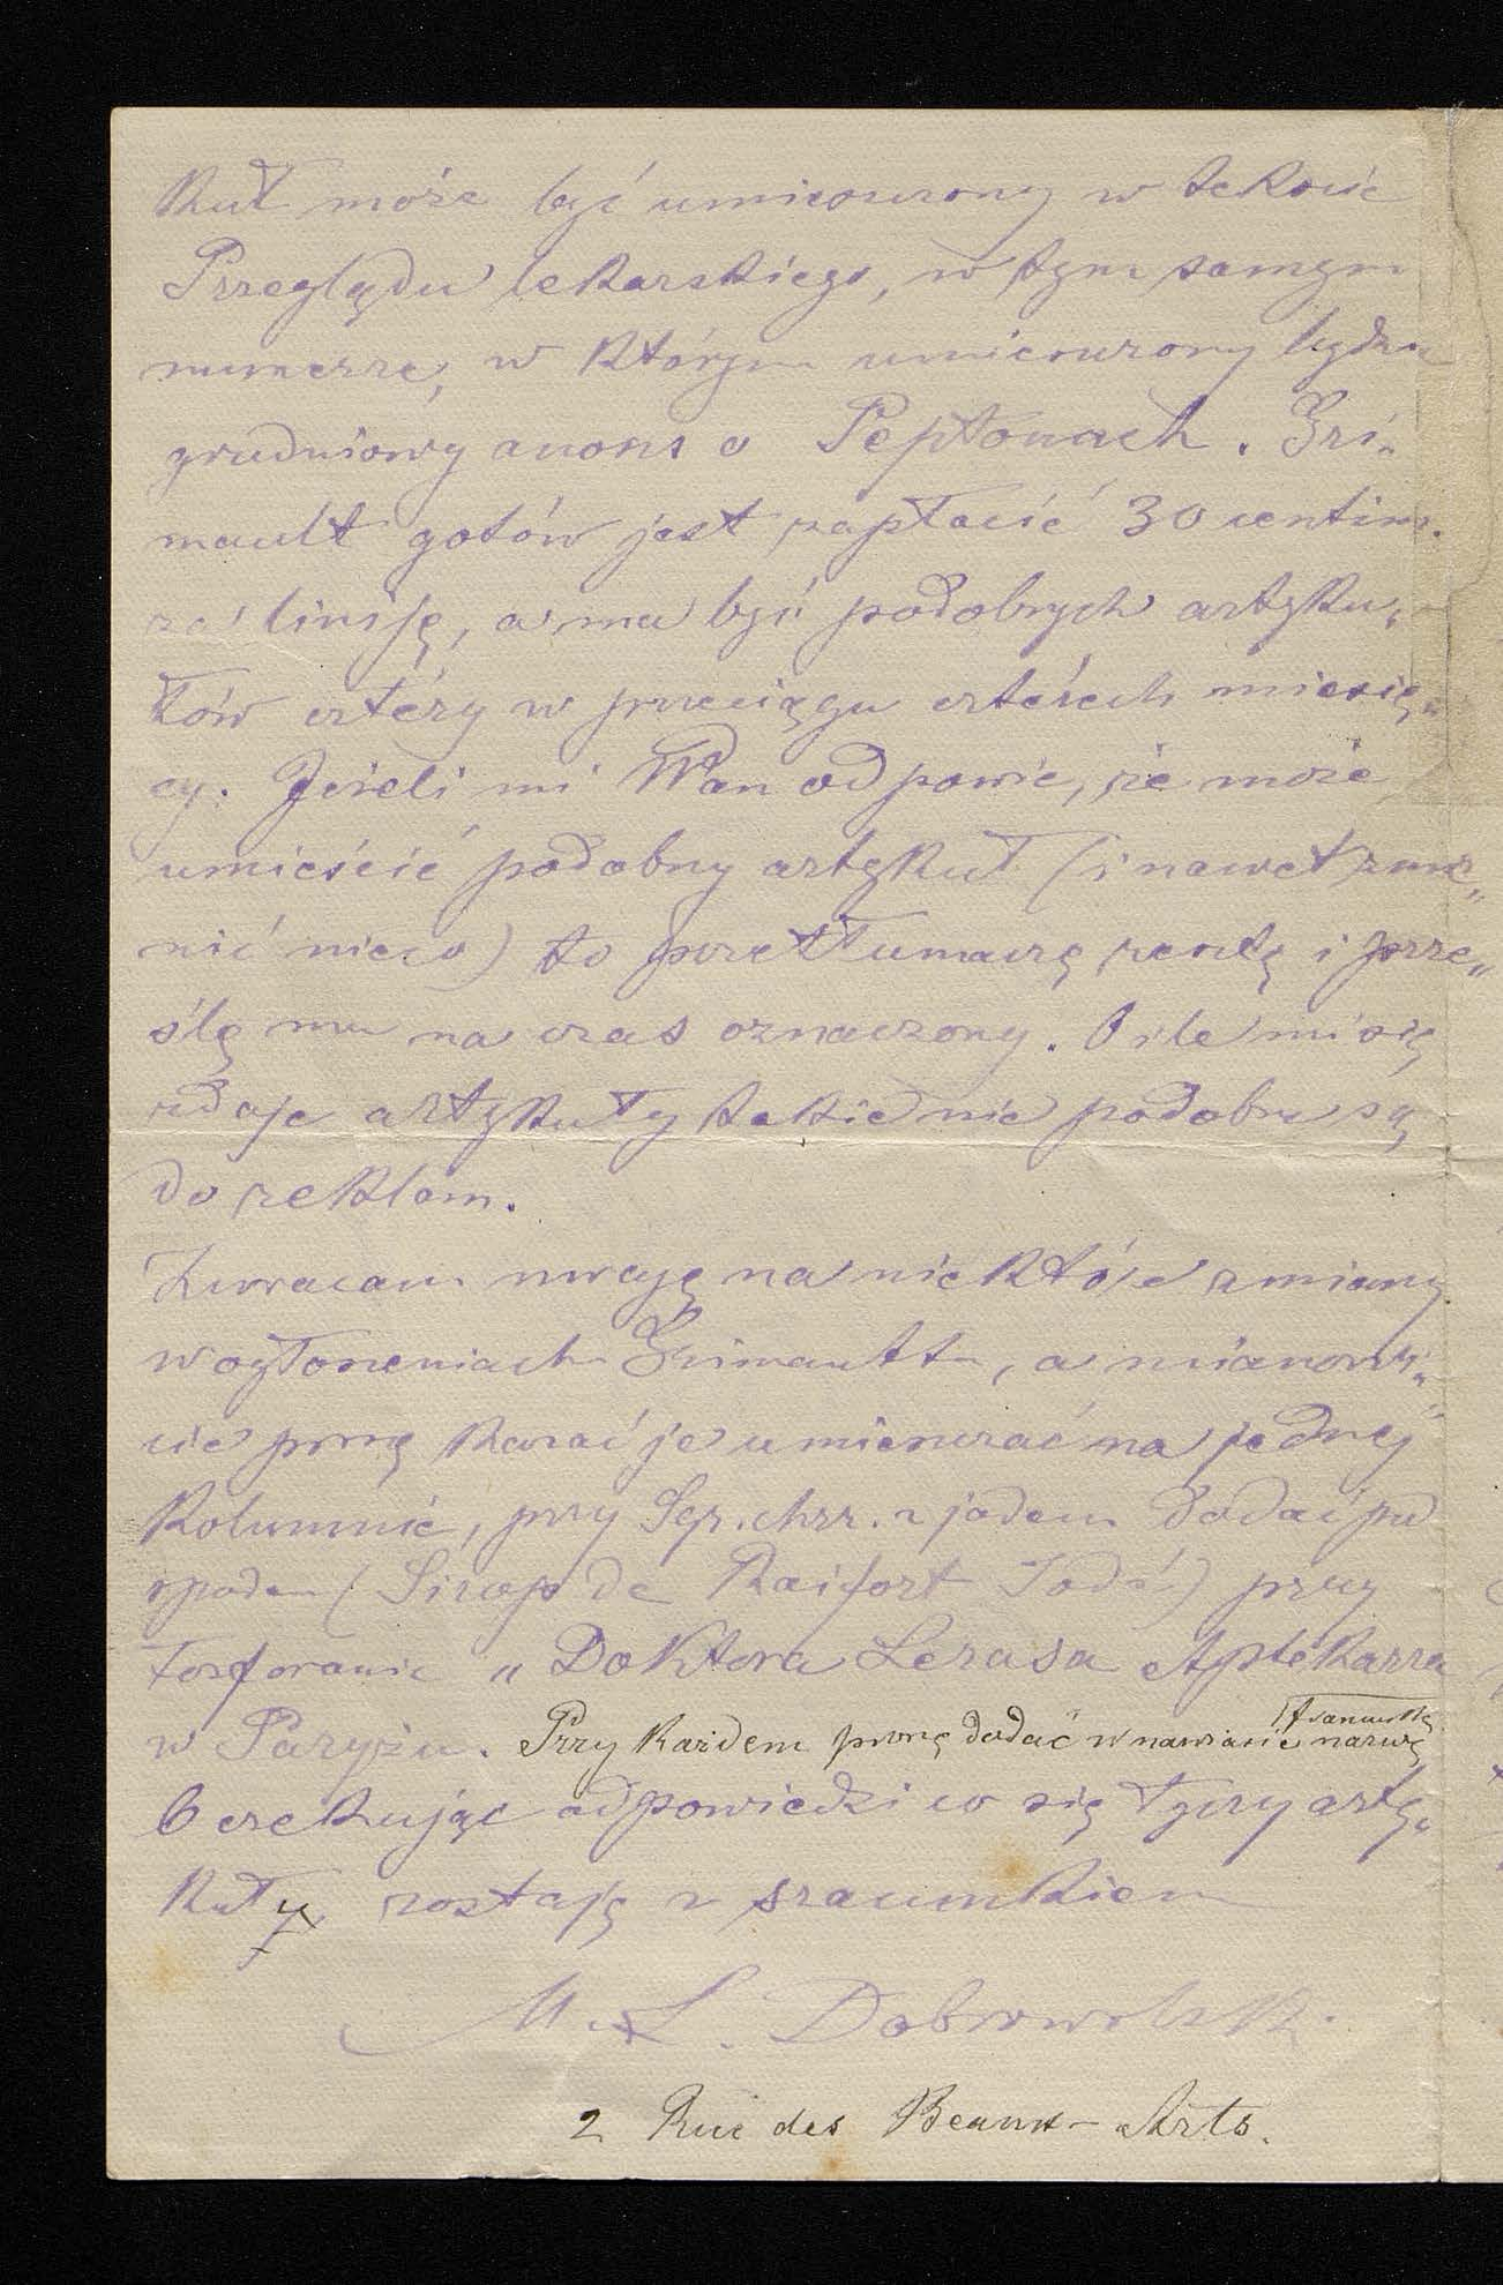 kuł może być umieszczony w tekscie
Przeglądu lekarskiego, w tym samym
numerze, w którym umieszczony będzie
grudniowy anons o Peptonach. Gri„
mault gotów jest zapłacić 30 centim.
za liniję, a ma być podobnych artyku„
łów cztéry w przeciągu czterech miesię„
cy. Jeżeli mi WPan odpowie, że może
umieścić podobny artykuł (i nawet zmie„
nić nieco) to przetłumaczę resztę i prze„
ślę mu na czas oznaczony. O ile mi się
zdaje artykuły takie nie podobne są
do reklam.
Zwracam uwagę na niektóre zmiany
w ogłoszeniach Grimaulta, a mianowi„
cie proszę kazać je umieszczać na jednej
kolumnie, przy Syr. chrz. z jodem dodać pod
spodem (Sirop de Raifort Iodé) przy
Fosforanie „Doktora Lerasa Aptekarza
w Paryżu. Przy każdem proszę dodać w nawiasie francuską nazwę
Oczekując odpowiedzi co się tyczy arty„
kuły, zostaję z szacunkiem
M. L. Dobrowolski
2 Rue des Beaux-Arts.